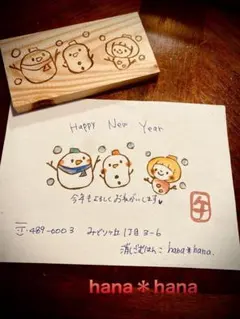 Happy New Year
今年もよろしくお願いします
〒489-0003 みどりヶ丘1丁目3-6
消しごむはんこ hana*hana.
hana*hana